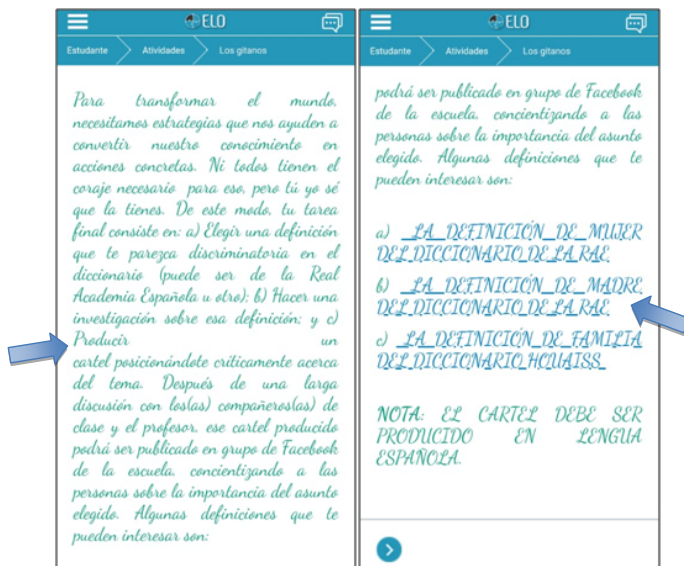 ELO
Estudante Atividades Los gitanos
Para transformar el mundo,
necesitamos estrategias que nos ayuden a
convertir nuestro conocimiento en
acciones concretas. Ni todos tienen el
coraje necesario para eso, pero tú yo sé
que la tienes. De este modo, tu tarea
final consiste en: a) Elegir una definición
que te parezca discriminatoria en el
diccionario (puede ser de la Real
Academia Española u otro); b) Hacer una
investigación sobre esa definición; y c)
Producir un
cartel posicionándote críticamente acerca
del tema. Después de una larga
discusión con los(as) compañeros(as) de
clase y el profesor, ese cartel producido
podrá ser publicado en grupo de Facebook
de la escuela, concientizando a las
personas sobre la importancia del asunto
elegido. Algunas definiciones que te
pueden interesar son:
ELO
Estudante Atividades Los gitanos
podrá ser publicado en grupo de Facebook
de la escuela, concientizando a las
personas sobre la importancia del asunto
elegido. Algunas definiciones que te
pueden interesar son:
a) LA DEFINICIÓN DE MUJER
DEL DICCIONARIO DE LA RAE
b) LA DEFINICIÓN DE MADRE
DEL DICCIONARIO DE LA RAE
c) LA DEFINICIÓN DE FAMILIA
DEL DICCIONARIO HOUAISS
NOTA: EL CARTEL DEBE SER
PRODUCIDO EN LENGUA
ESPAÑOLA.